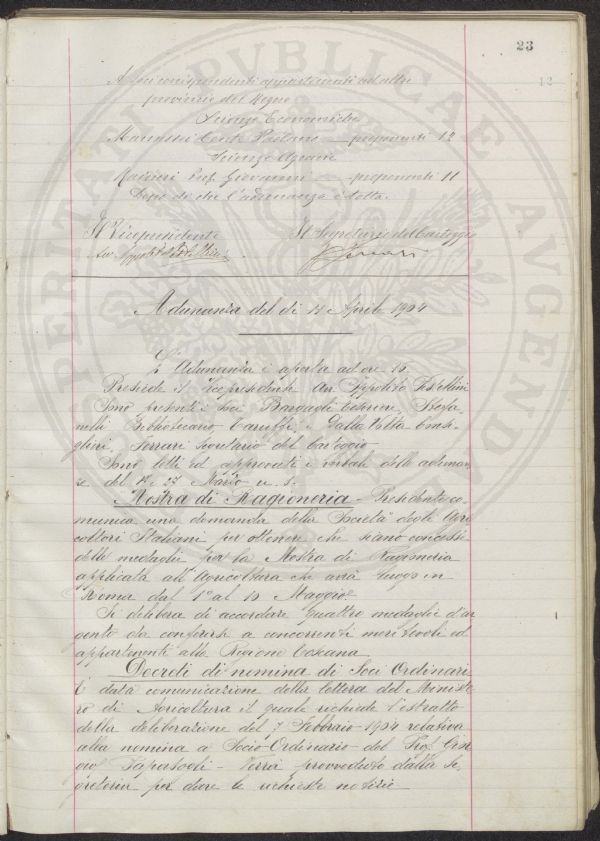 23
12
A Soci corrispondenti appartenenti ad altre
provincie del Regno
Scienze Economiche
Conte preponenti 12
Scienze Agrarie
Prof. Giovanni preponenti 11
Dopo di che l'adunanza è sciolta.
Il Vicepresidente Il Segretario del Carteggio
Ferrari
Adunanza del dì Aprile 1904
L'Adunanza è aperta ad ore
Presiede il Vicepresidente Avv. Ippolito
Sono presenti i Soci Bargagli Tesoriere, Stefa-
nelli Bibliotecario, Caruffi, Dalla Volta Consi-
glieri, Ferrari Segretario del Carteggio
Sono letti ed approvati i verbali delle adunan-
ze del 17 e 27 Marzo u. s.
Mostra di Ragioneria - Presidente co-
munica una domanda della Società degli Agri-
coltori Italiani per ottenere che siano concesse
delle medaglie per la Mostra di Ragioneria
applicata all'Agricoltura che avrà luogo in
Roma dal 1° al Maggio
Si delibera di accordare quattro medaglie d'ar
gento da conferirsi a concorrenti meritevoli ed
appartenenti alla Regione Toscana
Decreti di nomina di Soci Ordinari
È data comunicazione della lettera del Ministe
ro di Agricoltura il quale richiede l'estratto
della deliberazione del 7 Febbraio 1904 relativa
alla nomina a Socio Ordinario del Prof.
Verrà provveduto dalla Se
greteria per dare le richieste notizie
PROSPERITATI PVBLICAE AVGENDAE